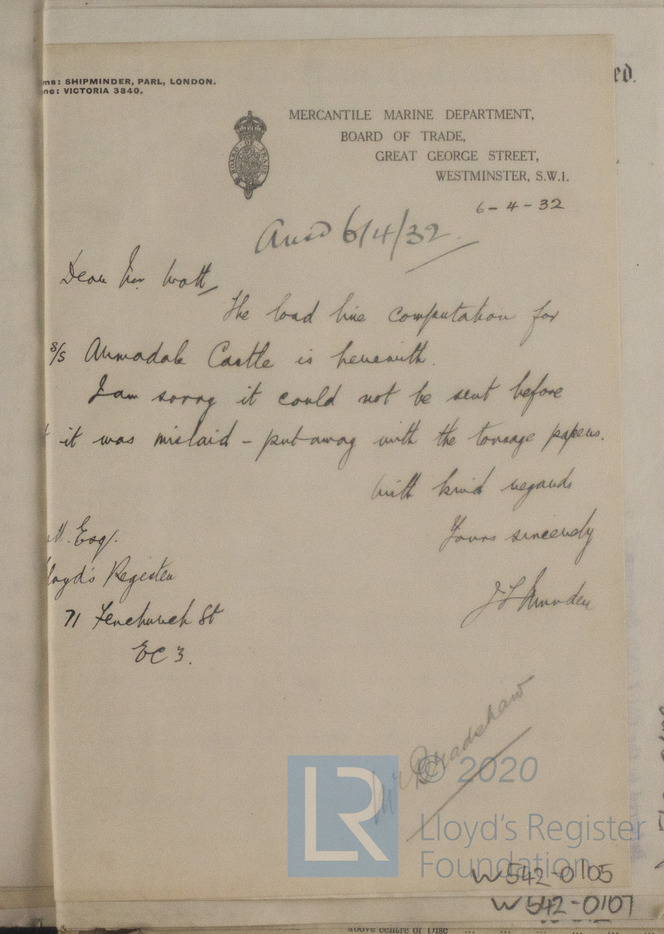 ms: SHIPMINDER, PARL, LONDON.
ne: VICTORIA 3840.
ed.
MERCANTILE MARINE DEPARTMENT,
BOARD OF TRADE,
GREAT GEORGE STREET,
WESTMINSTER, S.W.1.
BOARD OF TRADE
6-4-32
Ansd 6/4/32.
Dear Mr Watt,
The load line computation for
S/S Armadale Castle is herewith.
I am sorry it could not be sent before
it was mislaid - put away with the tonnage papers.
With kind regards
Yours sincerely
tt. Esq.
loyd's Register
71 Fenchurch St
EC3.
Mr Bradshaw
LR
© 2020
Lloyd's Register
Foundation
W542-0105
W542-0107
above centre of Disc